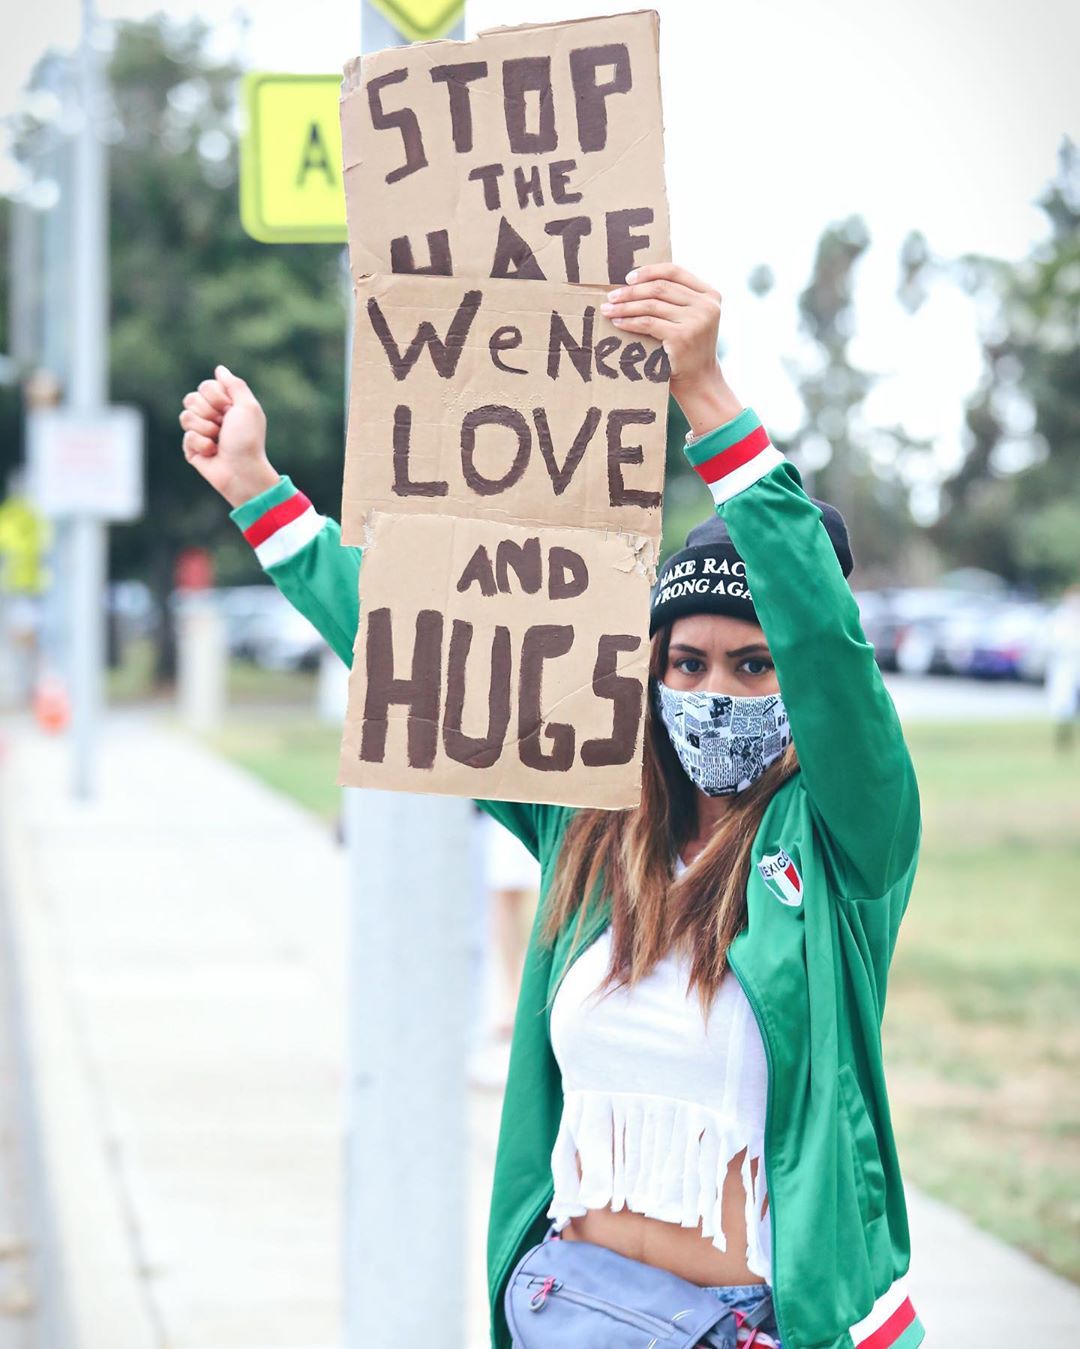 STOP
THE
HATE
We Need
LOVE
AND
HUGS
A
MAKE RAC
WRONG AGA
MEXICO